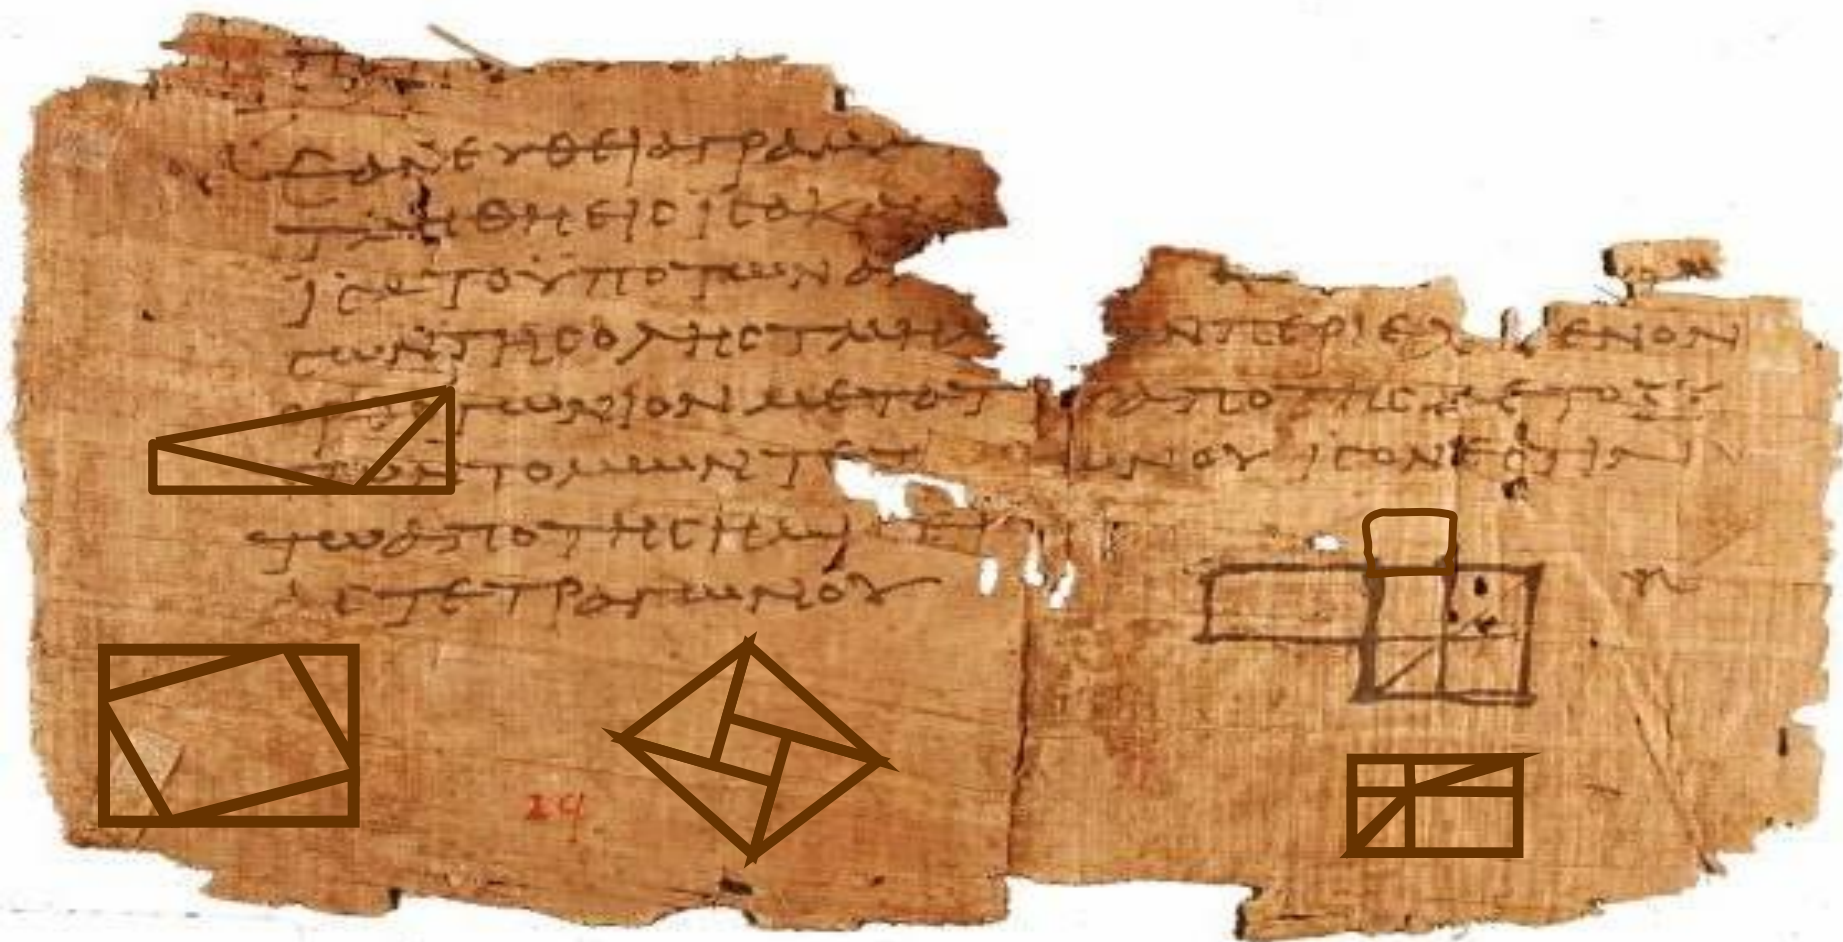 ΕΑΝΕΥΘΕΙΑΓΡΑΜΜ
ΤΜΗΘΗΕΙCΙCΑΚΑΙ
ΙCΑΤΟΥΠΟΤΩΝΑ
CΩΝΤΗCΟΛΗCΤΜΗΜ ΝΠΕΡΙΕΧ ΕΝΟΝ
ΓΩΝΙΟΝΜΕΤΑΤ ΑΠΟΤΗCΜΕΤΟΞΥ
ΤΩΝΤΟΜΩΝΤΕΤ ΩΝΟΥΙCΟΝΕCΤΙΝ
ΤΩΑΠΟΤΗCΗΜΙ ΕΙ
ΑCΤΕΤΡΑΓΩΝΟΥ
29